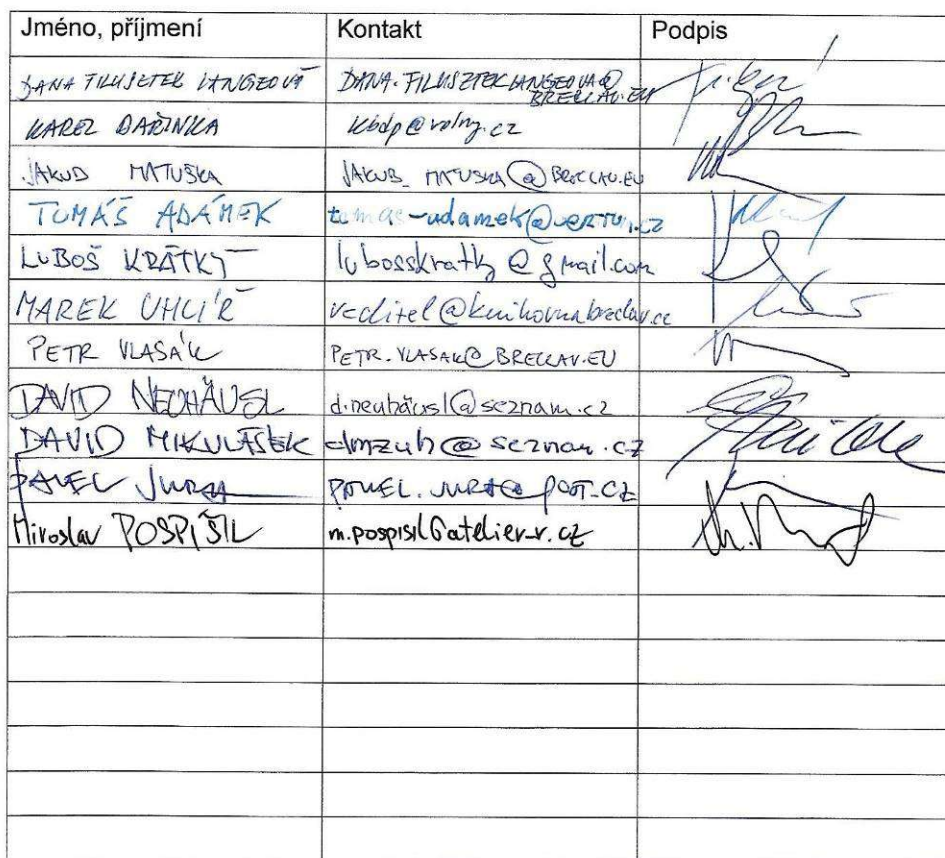 Jméno, příjmení Kontakt Podpis
DANA FILUSZTEK LANGEOVÁ DANA.FILUSZTEKLANGEOVA@
BRECLAV.EU
KAREL DAŘINKA kbdp@volny.cz
JAKUB MATUŠKA JAKUB.MATUSKA@BRECLAV.EU
TOMÁŠ ADÁMEK
LUBOŠ KRÁTKÝ lubosskratky@gmail.com
MAREK UHLÍŘ reditel@knihovnabreclav.cz
PETR VLASÁK PETR.VLASAK@BRECLAV.EU
DAVID NEUHÄUSL d.neuhäusl@seznam.cz
DAVID MIKULÁŠEK dmzuh@seznam.cz
PAVEL JURA
Miroslav POSPÍŠIL m.pospisil@atelier-r.cz